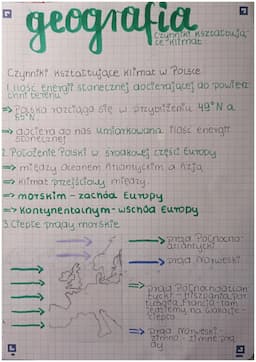 geografia
Czynniki kształtują-
ce klimat
Czynniki kształtujące klimat w Polsce
1. Ilość energii słonecznej docierającej do powierz
chni terenu
⇒ Polska rozciąga się w przybliżeniu 49°N a
55°N
⇒ dociera do nas umiarkowana ilość energii
słonecznej
2. Położenie Polski w środkowej części Europy
⇒ między Oceanem Atlantyckim a Azją
⇒ klimat przejściowy między
⇒ morskim - zachód Europy
⇒ kontynentalnym - wschód Europy
3. Ciepłe prądy morskie
→ prąd Północno-
atlantycki
→ prąd Norweski
⇒ prąd Północnoatlan
tycki - Hiszpania, Por
tugalia, Francja - tam
jeździmy na wakacje -
ciepło
⇒ prąd Norweski -
zimno - zimne prą
dy